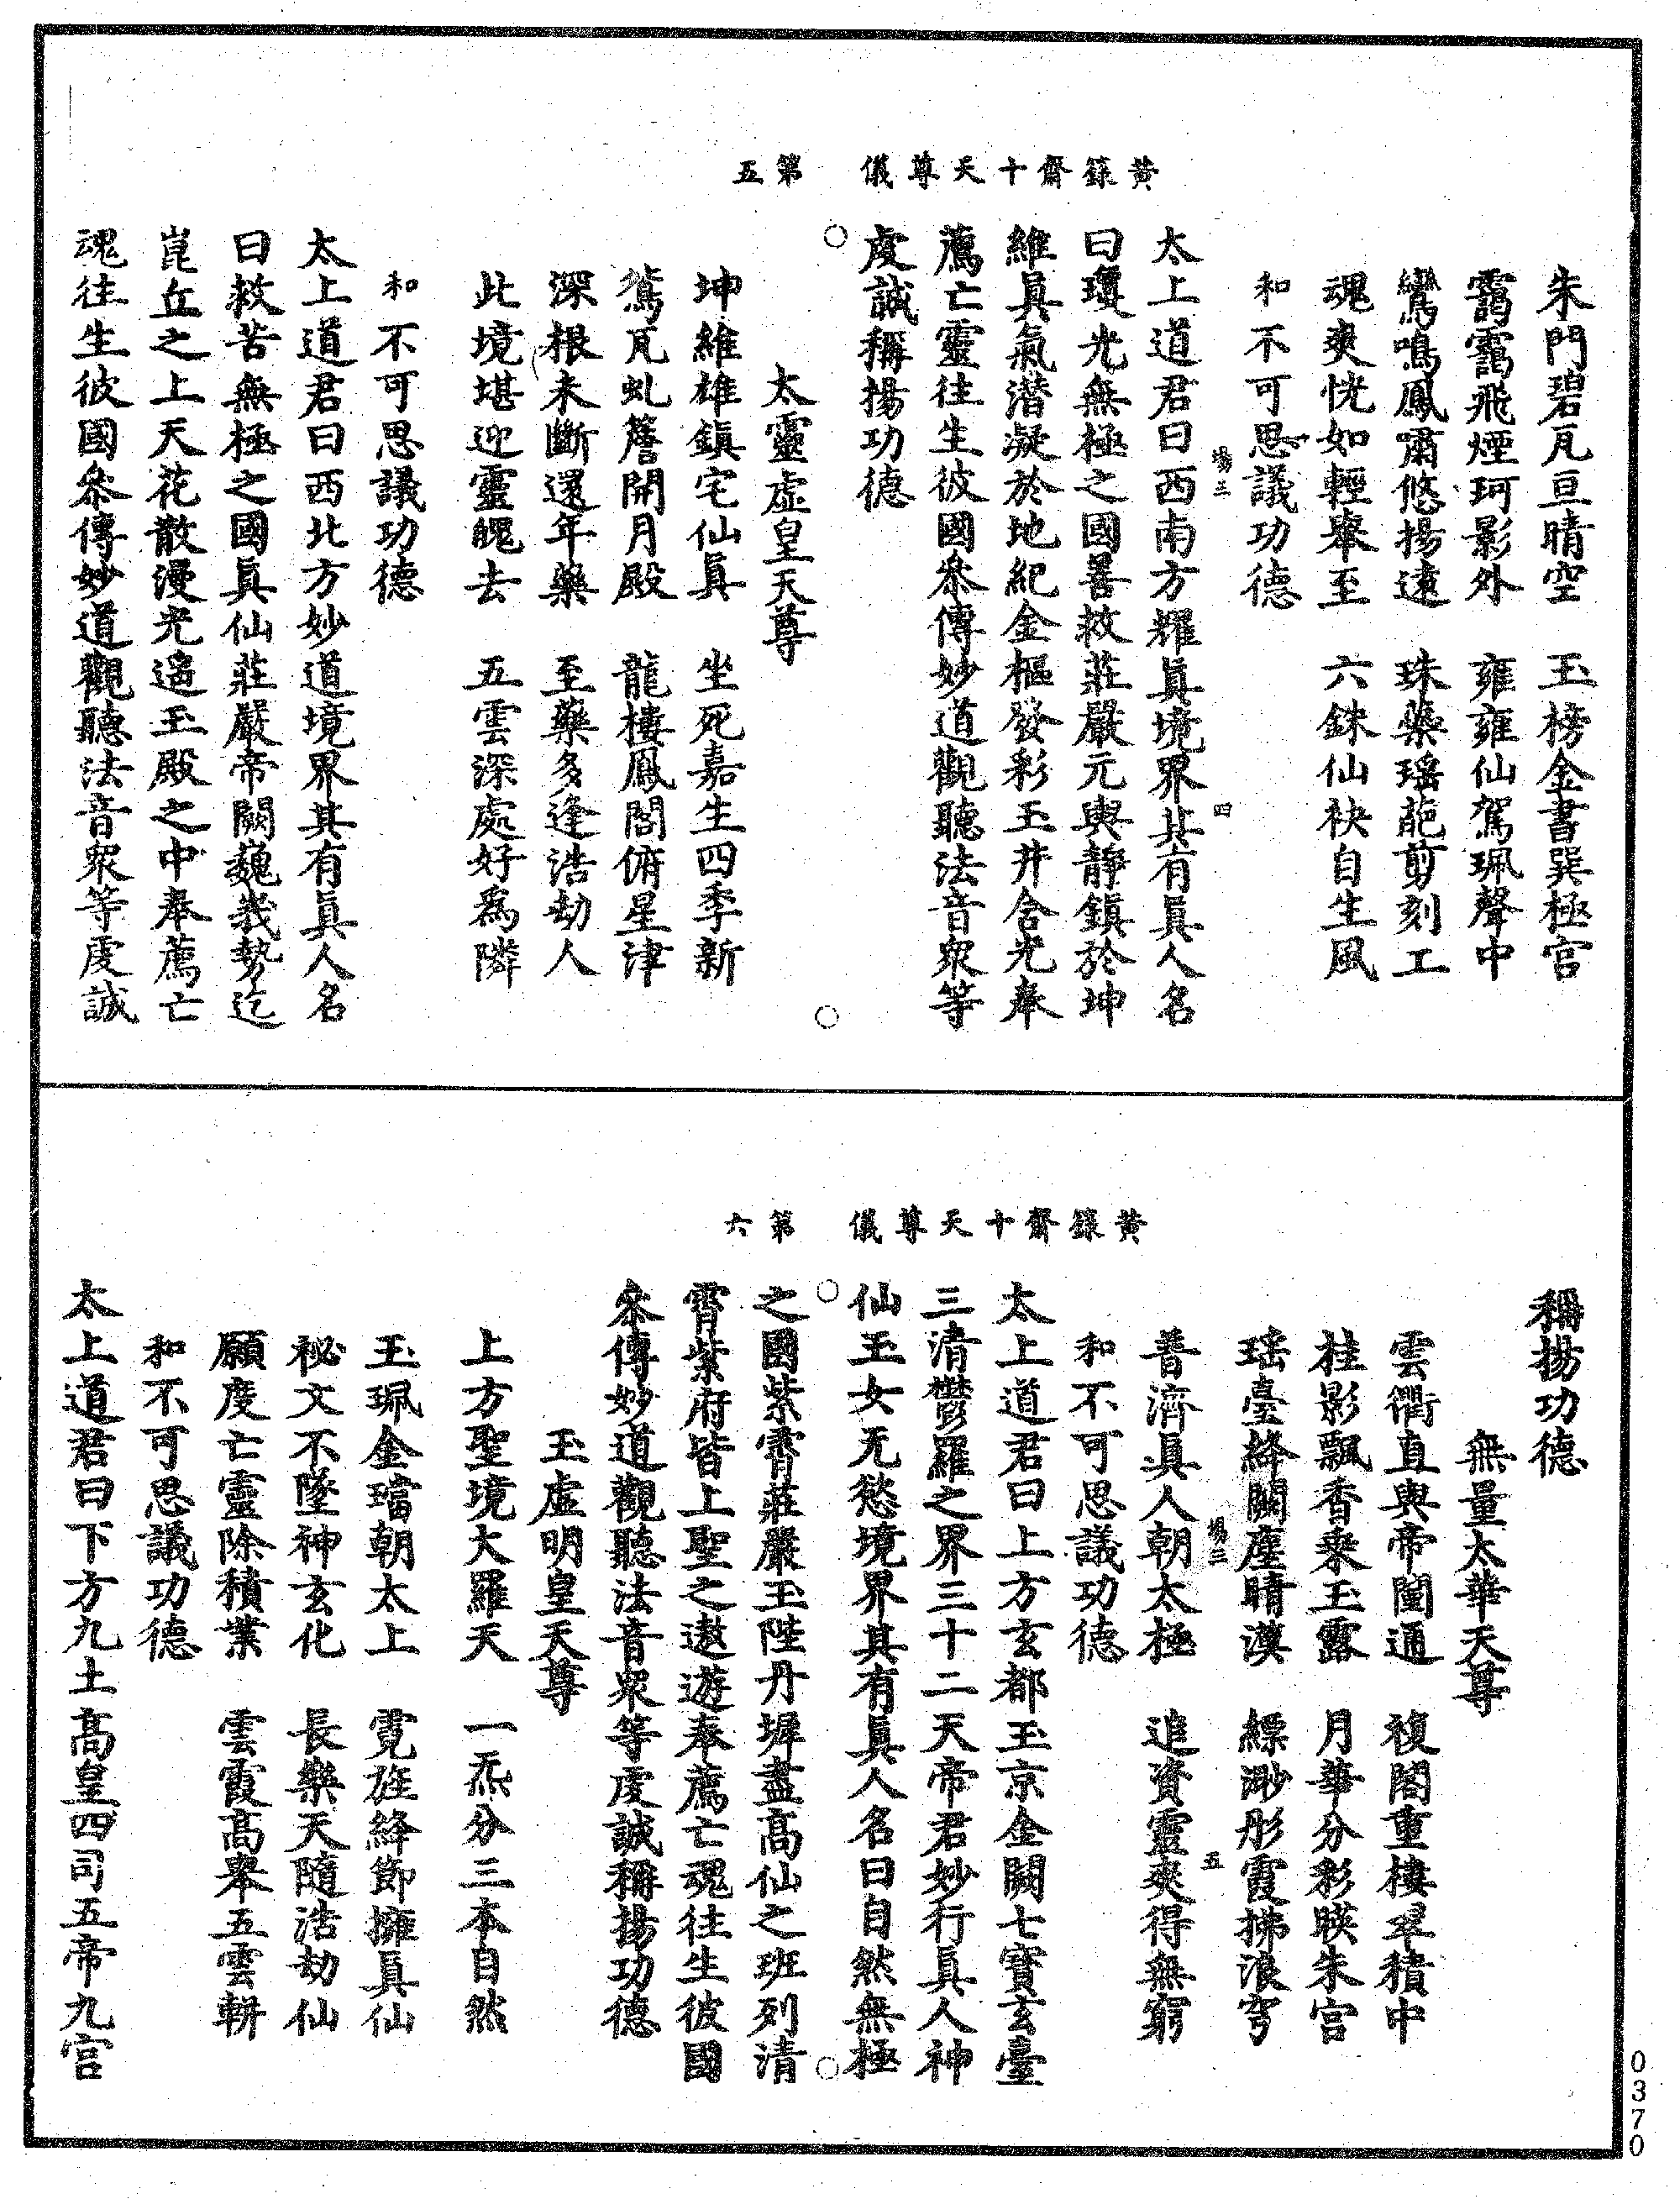 黃籙齋十天尊儀　第五
朱門碧瓦亘晴空　玉榜金書巽極宮
靄靄飛煙珂影外　雍雍仙駕珮聲中
鸞鳴鳳嘯悠揚遠　珠蘂瑶葩剪刻工
魂爽恍如輕舉至　六銖仙袂自生風
和不可思議功德
場三　四
太上道君曰西南方耀眞境界其有眞人名
曰瓊光無極之國善救莊嚴元輿靜鎮於坤
維眞氣潜凝於地紀金樞發彩玉井含光奉
薦亡靈往生彼國叅傳妙道觀聽法音衆等
虔誠稱揚功德
太靈虛皇天尊
坤維雄鎮宅仙眞　坐死嘉生四季新
鴛瓦虬簷開月殿　龍樓鳳閣俯星津
深根未斷還年藥　至藥多逢浩劫人
此境堪迎靈魄去　五雲深處好爲隣
和不可思議功德
太上道君曰西北方妙道境界其有眞人名
曰救苦無極之國眞仙莊嚴帝闕巍峩勢迄
崑丘之上天花散漫光遶玉殿之中奉薦亡
魂往生彼國叅傳妙道觀聽法音衆等虔誠
黃籙齋十天尊儀　第六
稱揚功德
無量太華天尊
雲衢直與帝閽通　複閣重樓翠積中
桂影飄香乘玉露　月華分彩暎朱宮
瑶臺絳闕塵晴漢　縹渺彤霞拂浪穹
普濟眞人朝太極　追資靈爽得無窮
場三　五
和不可思議功德
太上道君曰上方玄都玉京金闕七寳玄臺
三清鬱羅之界三十二天帝君妙行眞人神
仙玉女无慾境界其有眞人名曰自然無極
之國紫霄莊嚴玉陛丹墀盡高仙之班列清
霄紫府皆上聖之遨遊奉薦亡魂往生彼國
叅傳妙道觀聽法音衆等虔誠稱揚功德
玉虛明皇天尊
上方聖境大羅天　一炁分三本自然
玉珮金璫朝太上　霓旌絳節擁眞仙
祕文不墜神玄化　長樂天隨浩劫仙
願度亡靈除積業　雲霞高舉五雲軿
和不可思議功德
太上道君曰下方九土高皇四司五帝九宮
0370